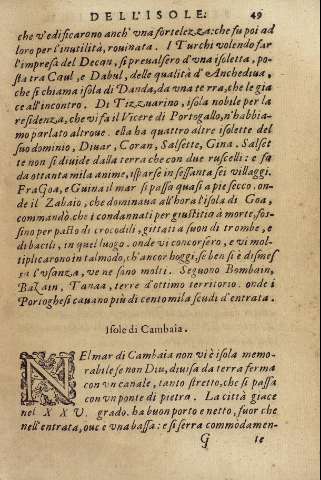 DELL'ISOLE. 49
che v'edificarono anch' vna fortelezza: che fu poi ad
loro per l'inutilità, rouinata. I Turchi volendo far
l'impresa del Decan, si preualsero d'vna isoletta, po-
sta tra Caul, e Dabul, delle qualità d'Anchediua,
che si chiama isola di Danda, da vna terra, che le gia
ce all'incontro. Di Tizzuarino, isola nobile per la
residenza, che vi fa il Vicere di Portogallo, n'habbia-
mo parlato altroue. ella ha quattro altre isolette del
suo dominio, Diuar, Coran, Salsette, Gina. Salset
te non si diuide dalla terra che con due ruscelli: e fa
da ottanta mila anime, isparse in sessanta sei villaggi.
Fra Goa, e Guina il mar si passa quasi a pie secco. on-
de il Zabaio, che dominaua all'hora l'isola di Goa,
commandò che i condannati per giustitia à morte, fos-
sino per pasto di crocodili, gittati a suon di trombe, e
di bacili, in quel luogo. onde vi concorsero, e vi mol-
tiplicarono in tal modo, ch'ancor hoggi, se ben si è dismes
sa l'vsanza, ve ne sono molti. Seguono Bombain,
Bazain, Tanaa, terre d'ottimo territorio. onde i
Portoghesi cauano più di cento mila scudi d'entrata.
Isole di Cambaia.
NEl mar di Cambaia non vi è isola memo-
rabile se non Diu, diuisa da terra ferma
con vn canale, tanto stretto, che si passa
con vn ponte di pietra. La città giace
nel XXV. grado. ha buon porto e netto, fuor che
nell'entrata, oue è vna bassa: e si serra commodamen-
G te